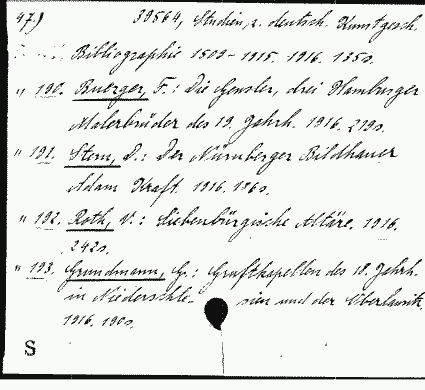 47) 39564, Studien, z. deutsch. Kunstgesch.
Bibliographie 1509-1915. 1916. 135 s.
" 190. Buerger, F.: Die Gensler, drei Hamburger
Malerbrüder des 19. Jahrh. 1916. 219 s.
" 191. Stern, D.: Der Nürnberger Bildhauer
Adam Kraft. 1916.
" 192. Roth, V.: Siebenbürgische Altäre. 1916.
242 s.
" 193. Grundmann, G.: Gruftkapellen des 18. Jahrh.
in Niederschle- sien und der Oberlausitz.
1916. 190 s.
S